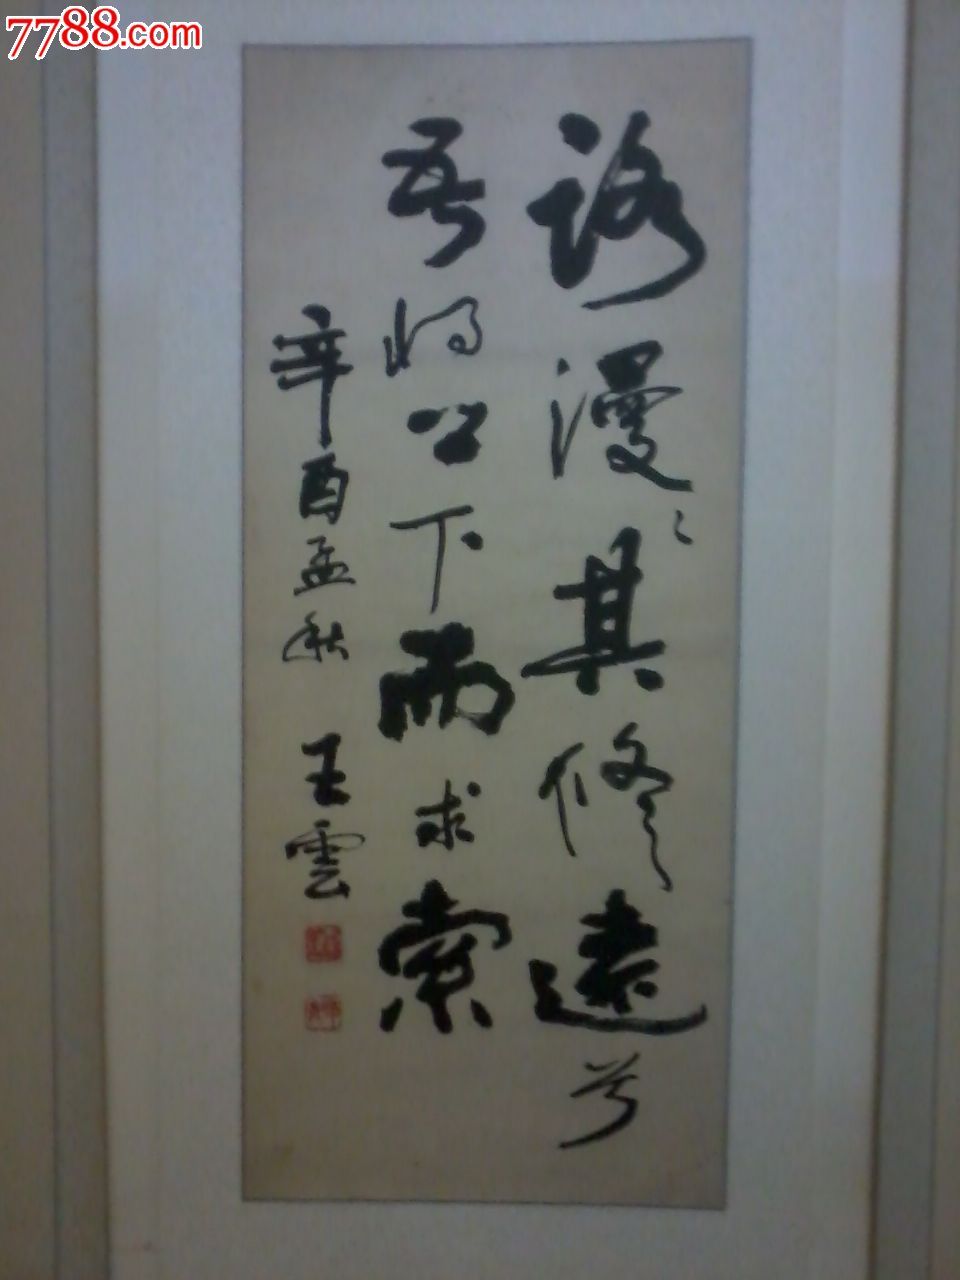 7788.com
路漫〻其修遠兮
吾將上下而求索
辛酉孟秋 王雲